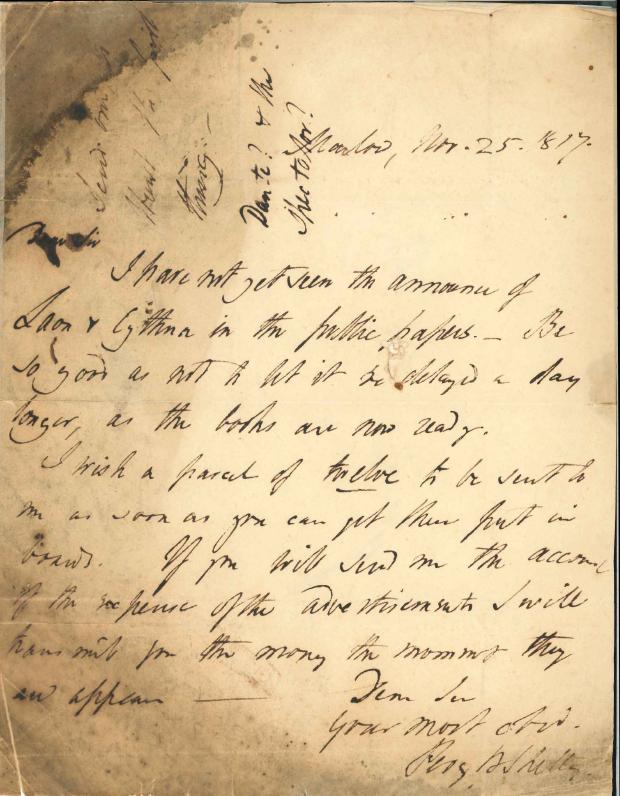 Marlow, Nov. 25. 1817.
Dear Sir
I have not yet seen the announce of
Laon & Cythna in the public papers. — Be
so good as not to let it be delayed a day
longer, as the books are now ready.
I wish a parcel of twelve to be sent to
me as soon as you can get them put in
boards. If you will send me the account
of the expense of the advertisements I will
transmit you the money the moment they
appear —
Dear Sir
Your most obed.
Percy B Shelley
Dante? & the
Spectator?
Send